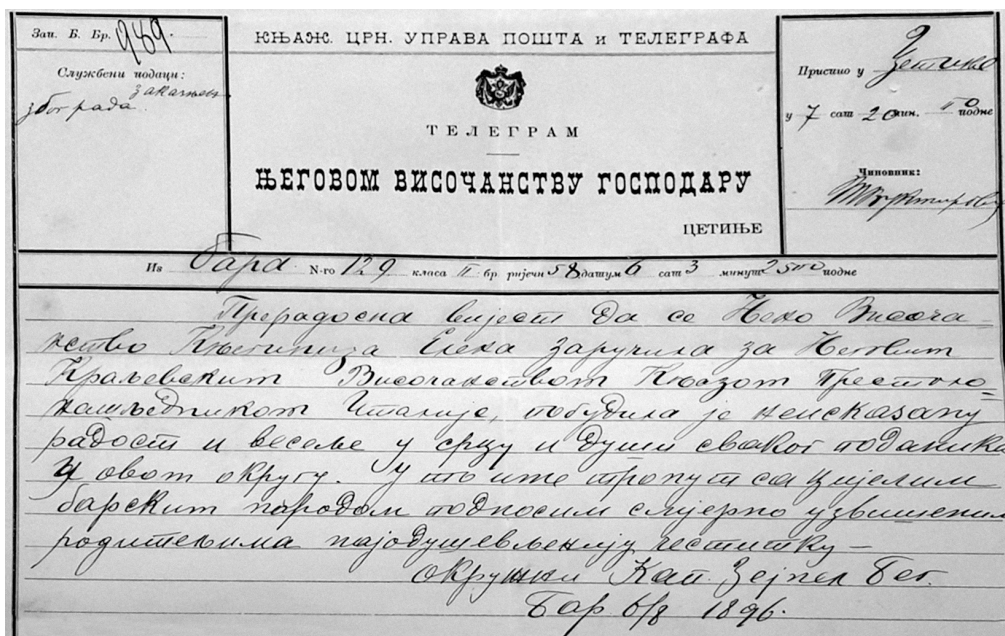 Зап. Б. Бр. 989.
Службени подаци:
због закашњења
рада
КЊАЖ. ЦРН. УПРАВА ПОШТА и ТЕЛЕГРАФА
ТЕЛЕГРАМ
ЊЕГОВОМ ВИСОЧАНСТВУ ГОСПОДАРУ
ЦЕТИЊЕ
Приспио у Цетиње
у 7 сат 20 мин. по подне
Чиновник:
Из Бара N-ro 129 класа II бр. ријечи 58 датум 6 сат 3 минут 25 по подне
Прерадосна вијест да се Нено Височа=
нство Књегиница Елена заручила за Његовим
Краљевским Височанством Књазом Престоло=
нашљедником Италије, побудила је неисказану
радост и весеље у срцу и души свакот поданика
у овом округу. У то име тропут са цијелим
барским народом подносим смјерно узвишеним
родитељима најодушевљенију честитку —
Окружни Кап. Зејнел Бег.
Бар 6/8 1896.